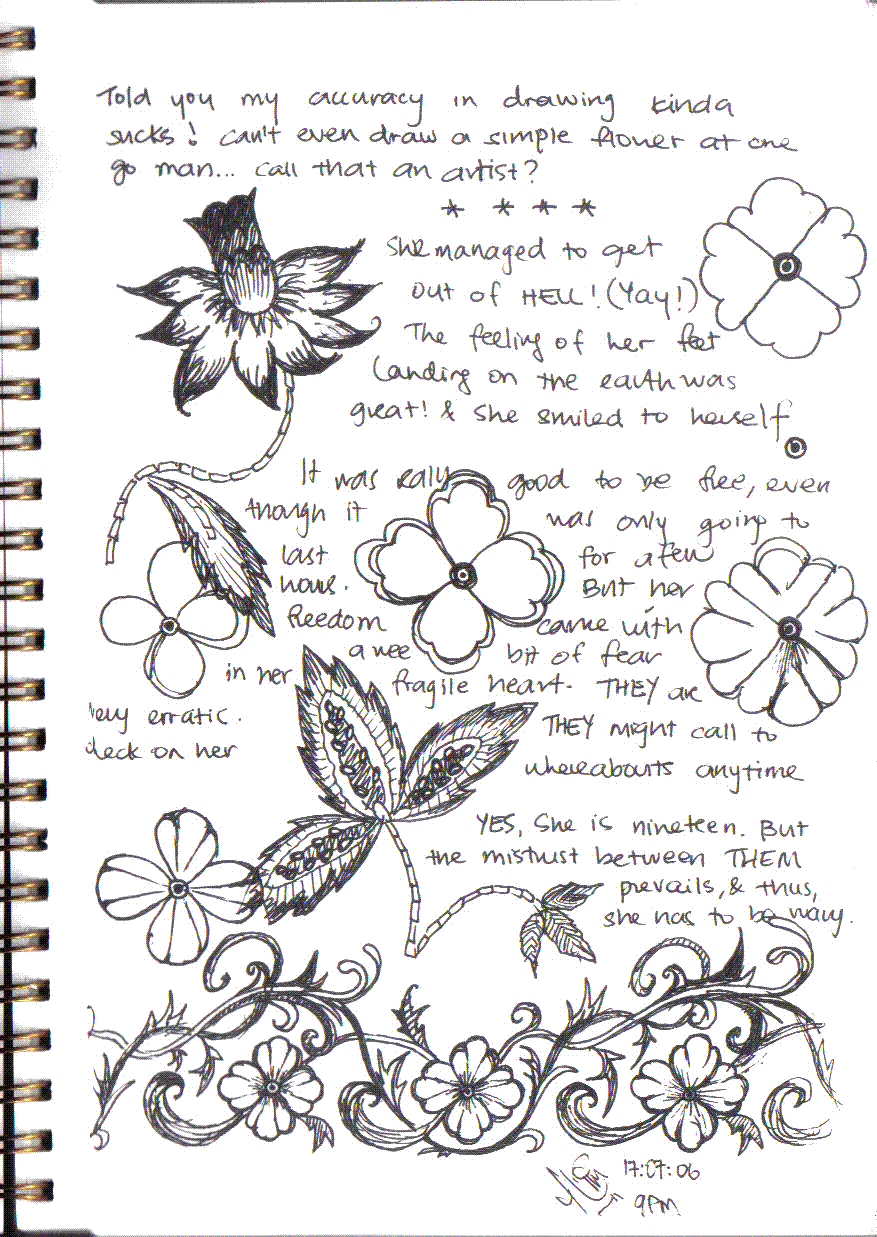 Told you my accuracy in drawing kinda
sucks! can't even draw a simple flower at one
go man... call that an artist?
* * * *
She managed to get
out of HELL! (Yay!)
The feeling of her feet
landing on the earth was
great! & she smiled to herself
It was realy good to be free, even
though it was only going to
last for a few
hours. But her
freedom came with
a wee bit of fear
in her fragile heart. THEY are
very erratic. THEY might call to
check on her whereabouts anytime
YES, She is nineteen. But
the mistrust between THEM
prevails, & thus,
she has to be wary.
17:07:06
9PM